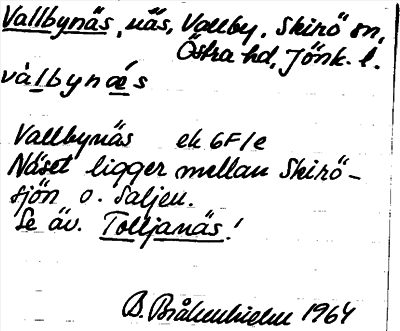 Vallbynäs, näs, Vallby, Skirö sn,
Östra hd, Jönk. l.
vàlbynǽs
Vallbynäs ek 6F1e
Näset ligger mellan Skirö-
sjön o. Saljen.
Se äv. Tolljanäs!
B. 1964